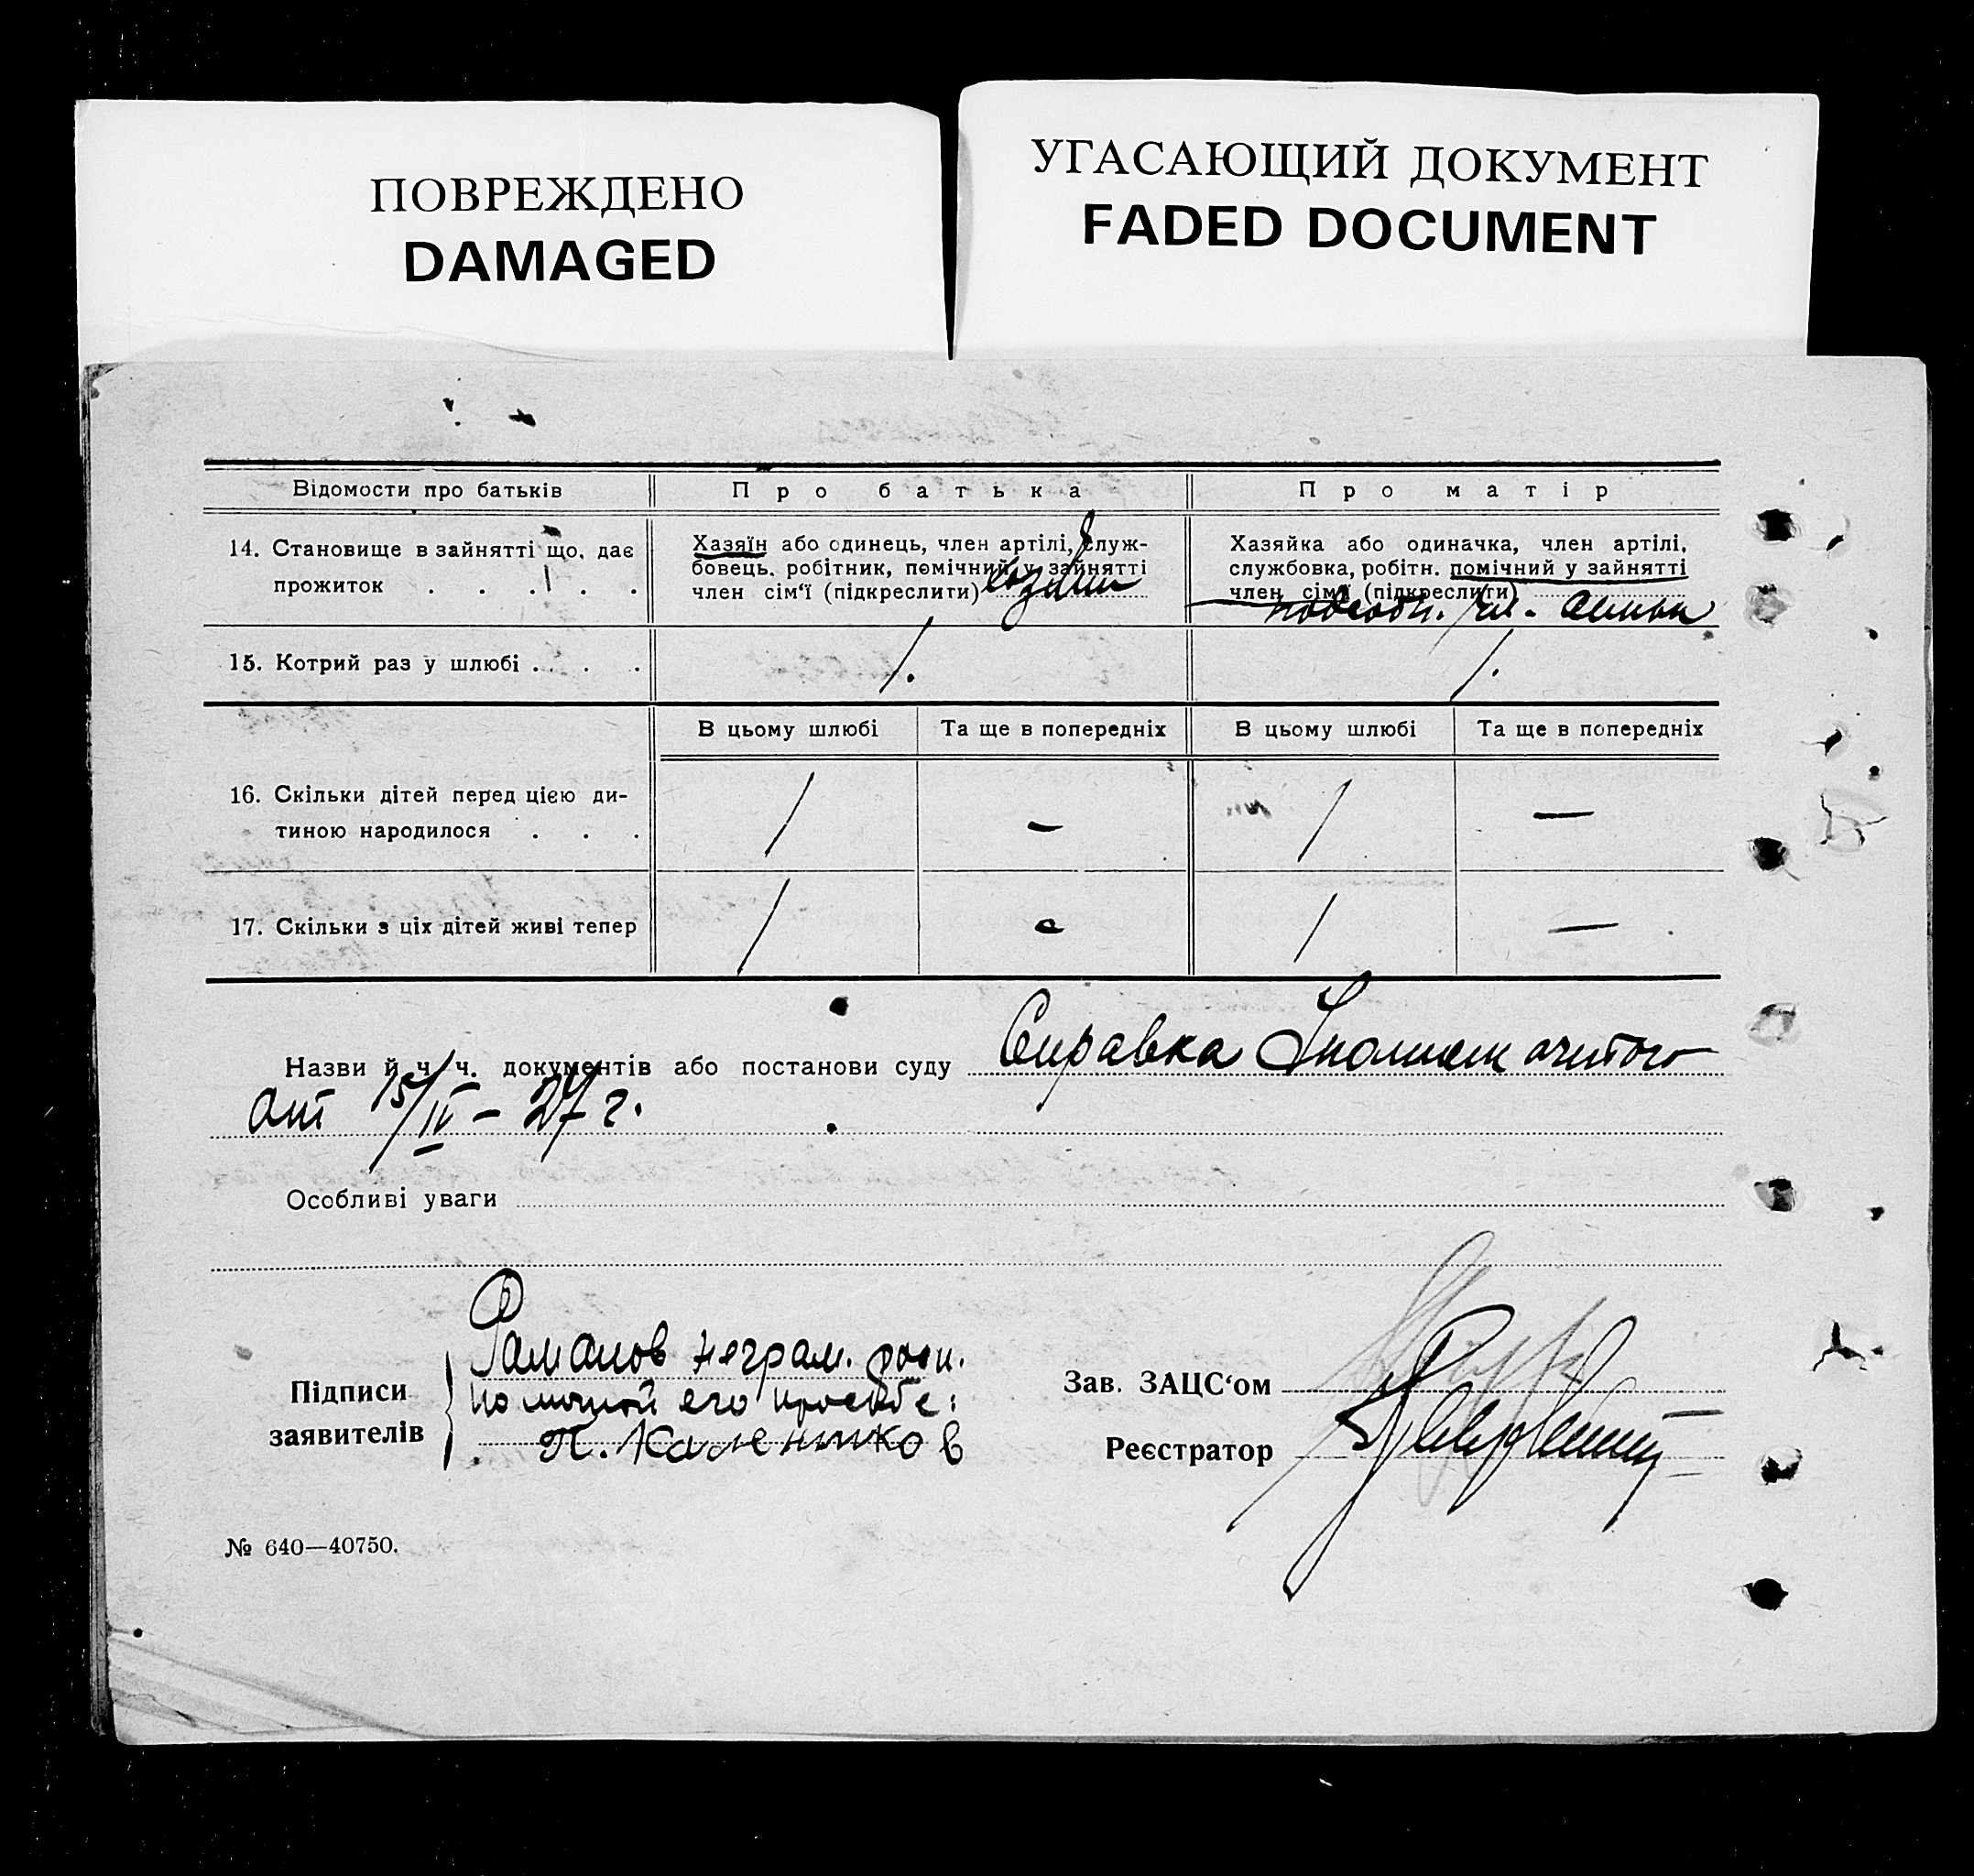 ПОВРЕЖДЕНО
DAMAGED
УГАСАЮЩИЙ ДОКУМЕНТ
FADED DOCUMENT
Відомости про батьків
Про батька
Про матір
14. Становище в зайнятті що, дає
прожиток . . . . .
Хазяїн або одинець, член артілі, служ-
бовець, робітник, помічний у зайнятті
член сім‘ї (підкреслити) хозяин
Хазяйка або одиначка, член артілі,
службовка, робітн. помічний у зайнятті
член сім‘ї (підкреслити)
чл. семьи
15. Котрий раз у шлюбі . . . .
1.
1.
В цьому шлюбі
Та ще в попередніх
В цьому шлюбі
Та ще в попередніх
16. Скільки дітей перед цією ди-
тиною народилося . . .
1
—
1
—
17. Скільки з ціх дітей живі тепер
1
-
1
—
Назви й ч/ч. документів або постанови суду Справка
от 15/IV – 27 г.
Особливі уваги
Підписи
заявителів
Раманов неграм. росп.
по личной его просьбе:
П. Калеников
Зав. ЗАЦС‘ом
Реєстратор
№ 640—40750.